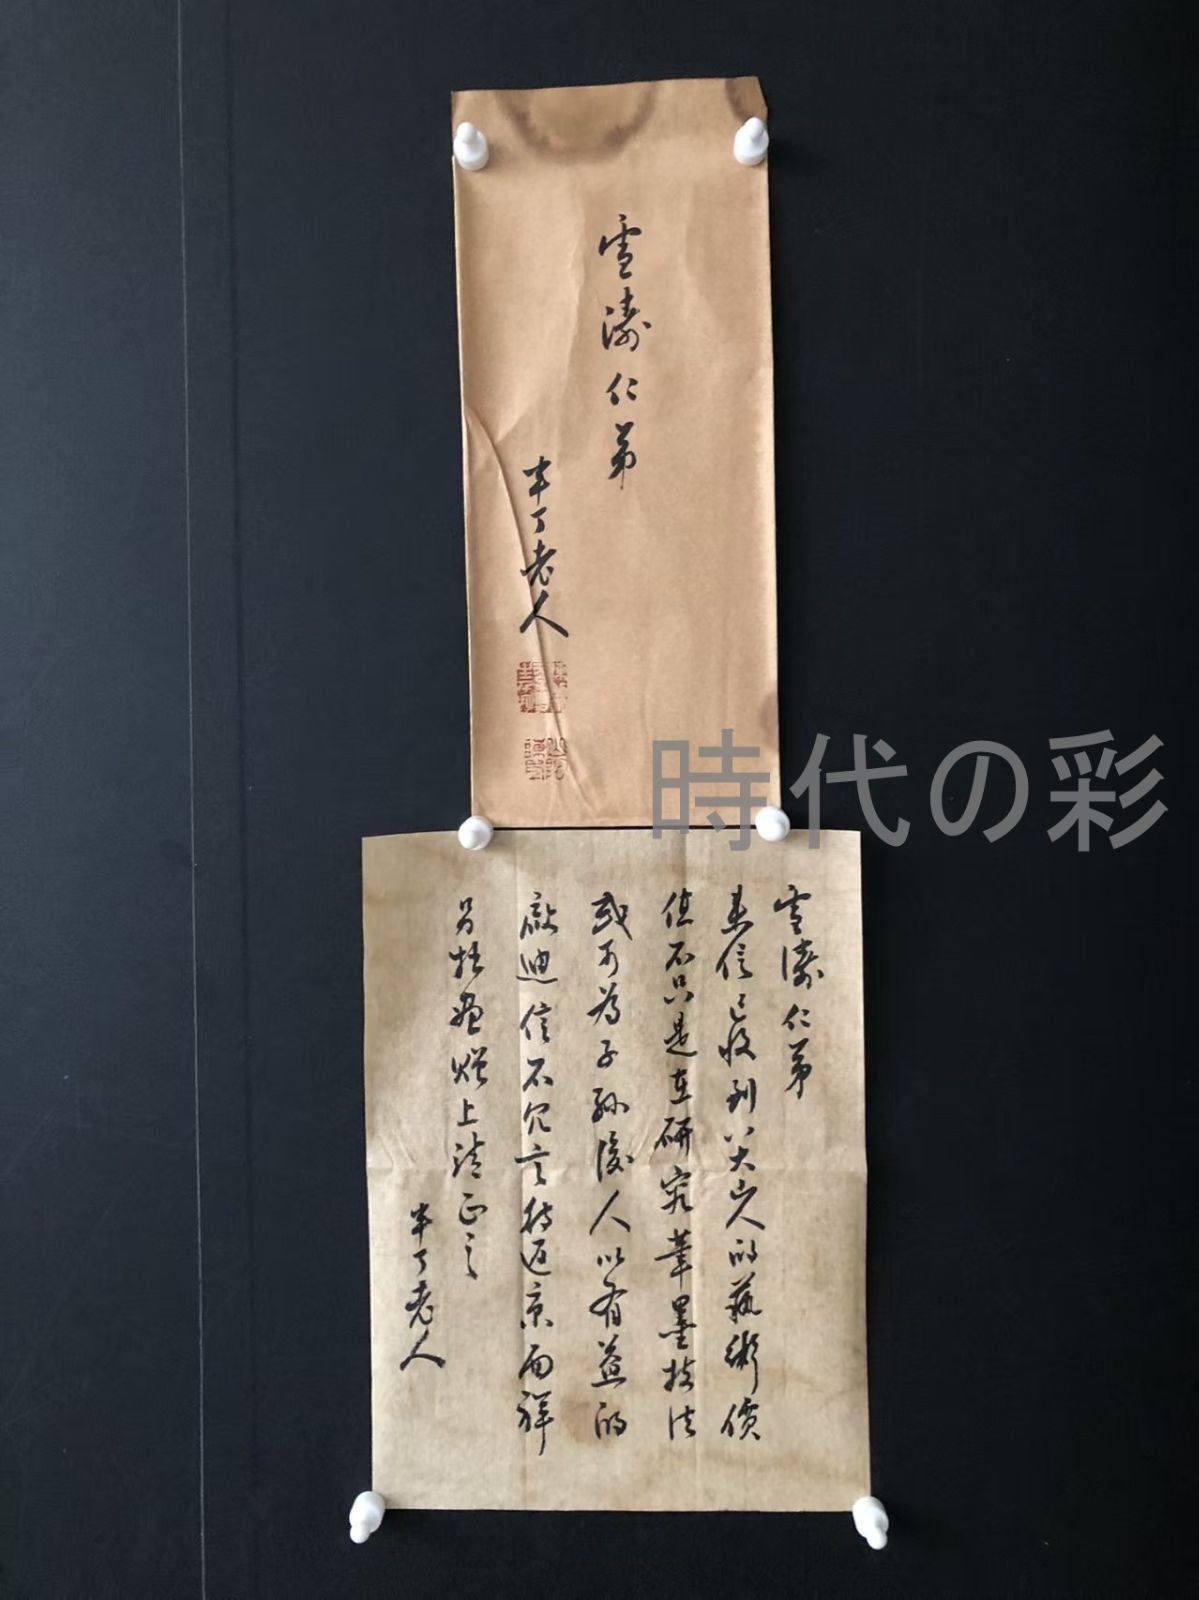 雪濤仁弟
半丁老人
時代の彩
雪濤仁弟
来信已收到八大山人的藝術價
值不只是在研究筆墨技法
或可為子孫後人以有益的
啟迪信不冗言待返京面詳
另拙畫贈上請正之
半丁老人